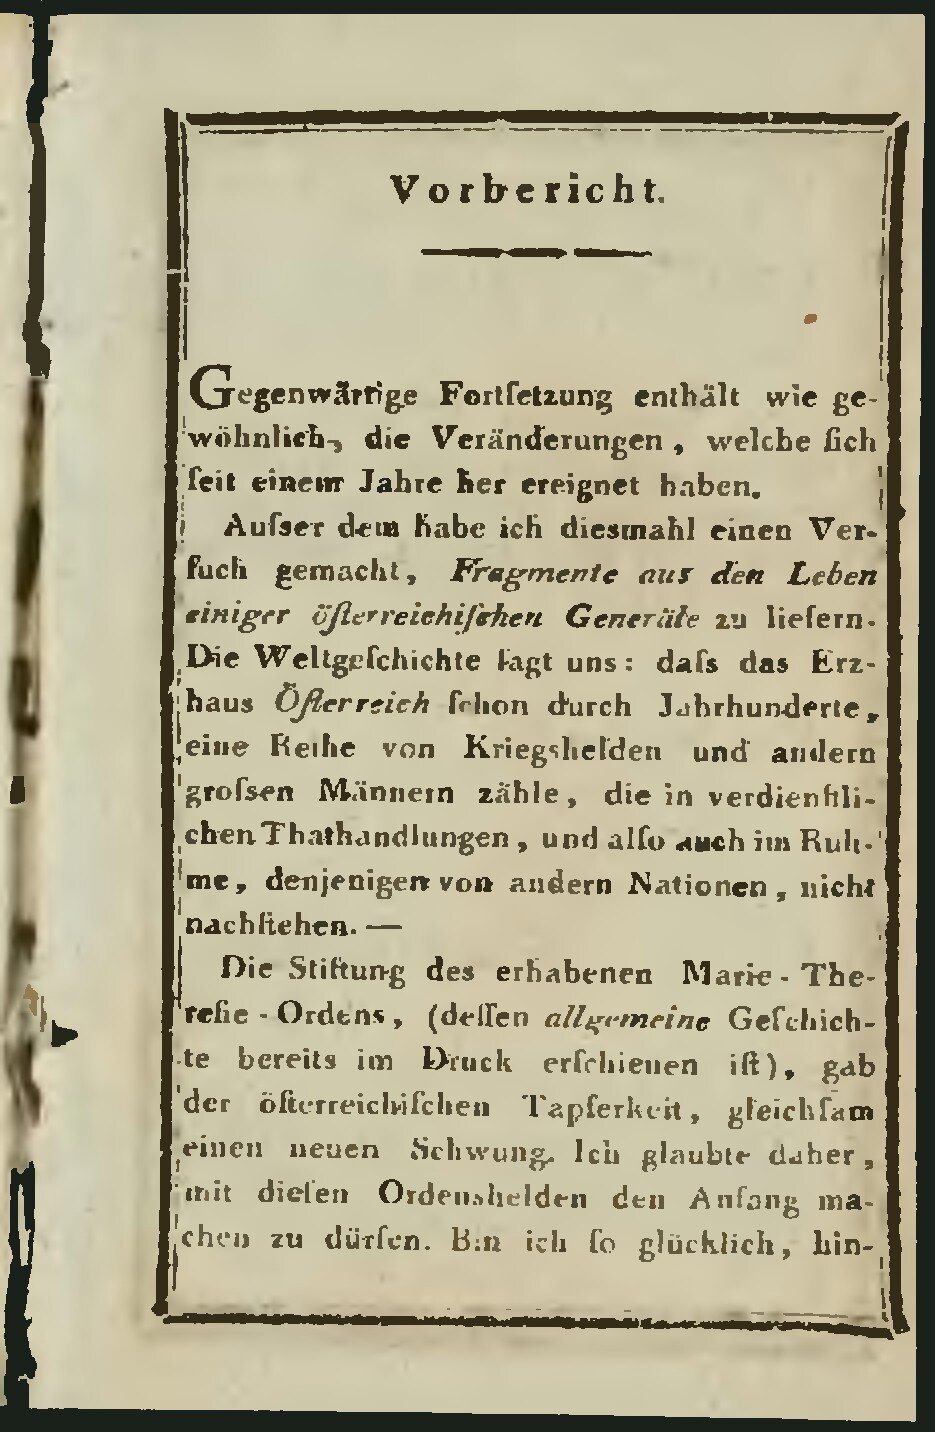 Vorbericht.
Gegenwärtige Fortſetzung enthält wie ge-
wöhnlich, die Veränderungen, welche ſich
ſeit einem Jahre her ereignet haben.
Auſser dem habe ich diesmahl einen Ver-
ſuch gemacht, Fragmente aus den Leben
einiger öſterreichiſchen Generäle zu liefern.
Die Weltgeſchichte ſagt uns: daſs das Erz-
haus Öſterreich ſchon durch Jahrhunderte,
eine Reihe von Kriegshelden und andern
groſsen Männern zähle, die in verdienſtli-
chen Thathandlungen, und alſo auch im Ruh-
me, denjenigen von andern Nationen, nicht
nachſtehen. —
Die Stiftung des erhabenen Marie-The-
reſie-Ordens, (deſſen allgemeine Geſchich-
te bereits im Druck erſchienen iſt), gab
der öſterreichiſchen Tapferkeit, gleichſam
einen neuen Schwung. Ich glaubte daher,
mit dieſen Ordenshelden den Anfang ma-
chen zu dürfen. Bin ich ſo glücklich, hin-